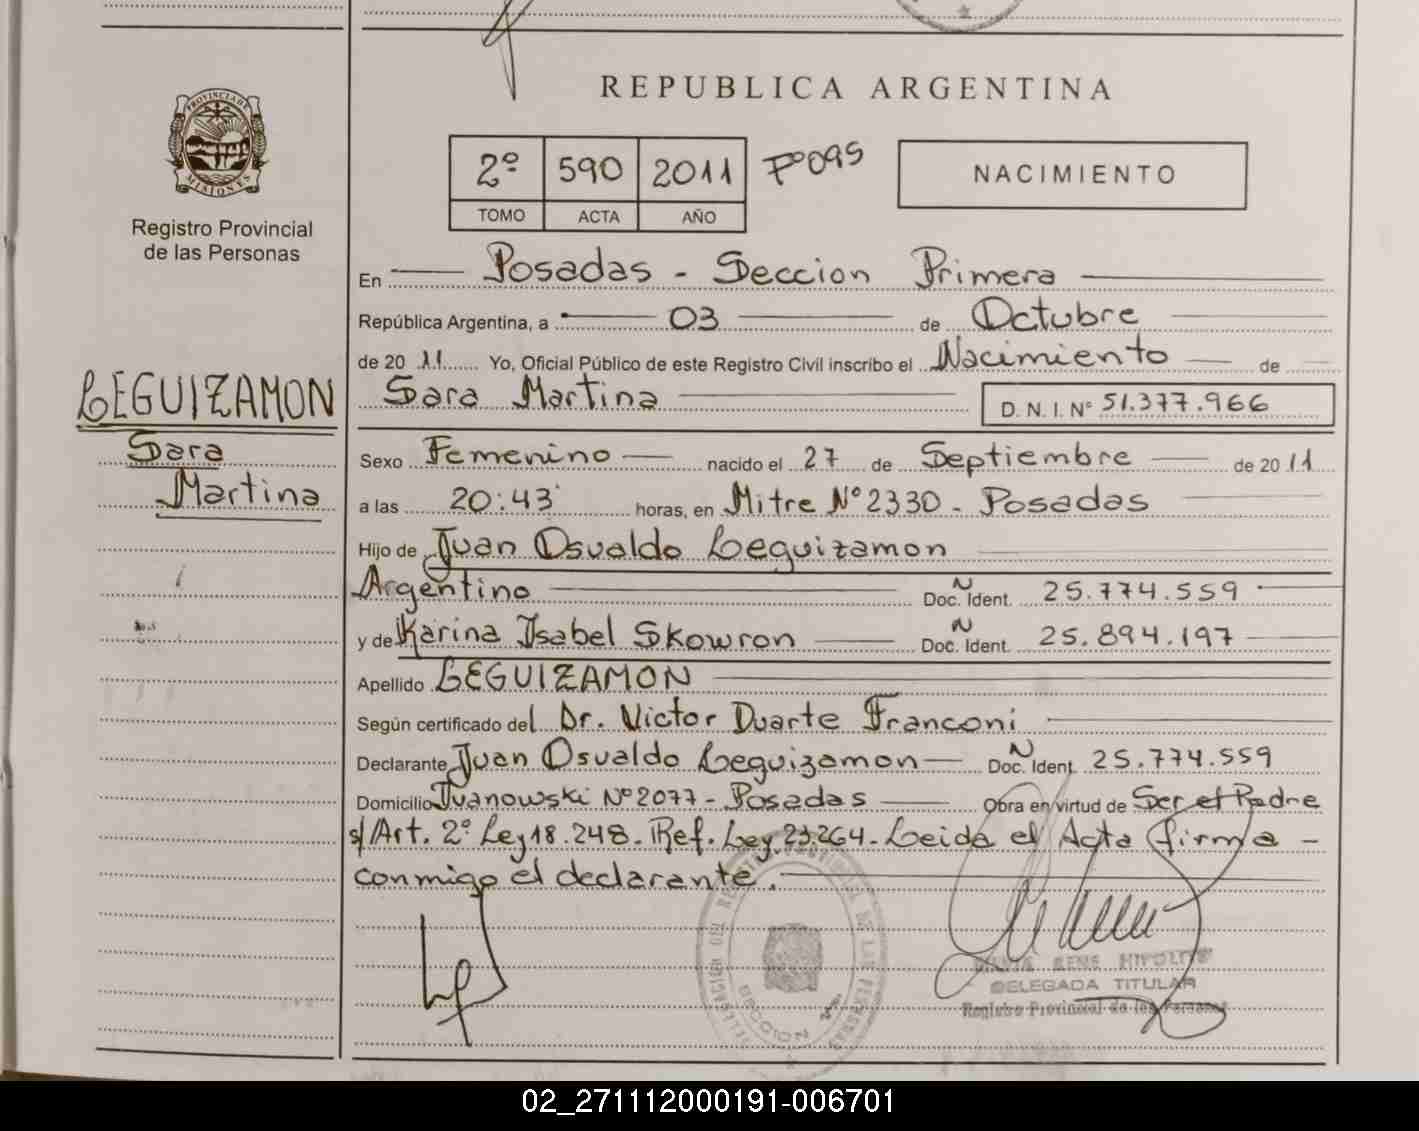 REPUBLICA ARGENTINA
PROVINCIA DE
MISIONES
Registro Provincial
de las Personas
2º 590 2011 Fº095
TOMO ACTA AÑO
NACIMIENTO
En Posadas - Seccion Primera
República Argentina, a 03 de Octubre
de 20 11 Yo, Oficial Público de este Registro Civil inscribo el Nacimiento de
LEGUIZAMON
Sara
Martina
Sara Martina D. N. I. Nº 51.377.966
Sexo Femenino nacido el 27 de Septiembre de 20 11
a las 20:43 horas, en Mitre Nº 2330 - Posadas
Hijo de Juan Osvaldo Leguizamon
Argentino Doc. Ident. 25.774.559
y de Karina Isabel Skowron Doc. Ident. 25.894.197
Apellido LEGUIZAMON
Según certificado del Dr. Victor Duarte Franconi
Declarante Juan Osvaldo Leguizamon Doc. Ident. 25.774.559
Domicilio Ivanowski Nº 2077 - Posadas Obra en virtud de Ser el Padre
s/Art. 2º Ley 18.248. Ref. Ley 23.264. Leida el Acta firma -
conmigo el declarante.
DELEGADA TITULAR
Registro Provincial de las Personas
SECCION
02_271112000191-006701